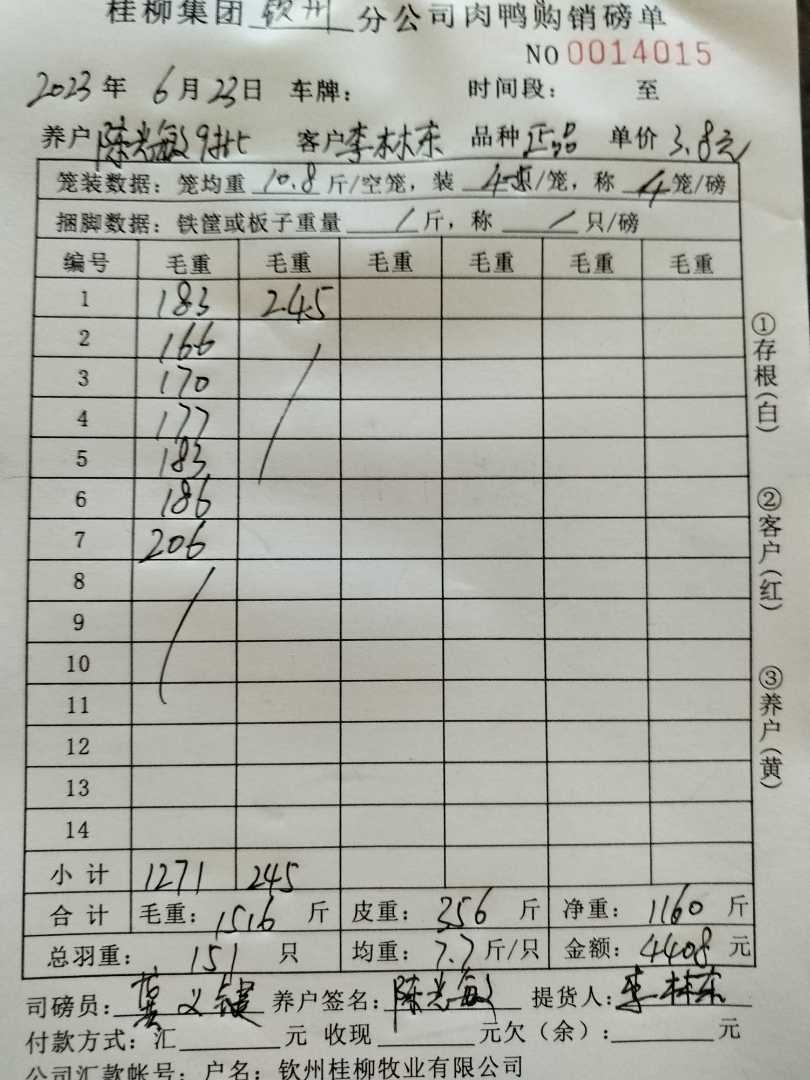 桂柳集团 钦州 分公司肉鸭购销磅单
NO 0014015
2023年 6月23日 车牌: 时间段: 至
养户 陈光敏9批 客户 李林东 品种 正品 单价 3.8元
笼装数据: 笼均重 10.8 斤/空笼, 装 4-5只/笼, 称 4 笼/磅
捆脚数据: 铁筐或板子重量 / 斤, 称 / 只/磅
编号 毛重 毛重 毛重 毛重 毛重 毛重
1 183 245
2 166
3 170
4 177
5 183
6 186
7 206
8
9
10
11
12
13
14
小计 1271 245
合计 毛重: 1516 斤 皮重: 356 斤 净重: 1160 斤
总羽重: 151 只 均重: 7.7 斤/只 金额: 4408 元
司磅员: 义键 养户签名: 陈光敏 提货人: 李林东
付款方式: 汇 元 收现 元欠(余): 元
公司汇款帐号: 户名: 钦州桂柳牧业有限公司
①存根(白) ②客户(红) ③养户(黄)